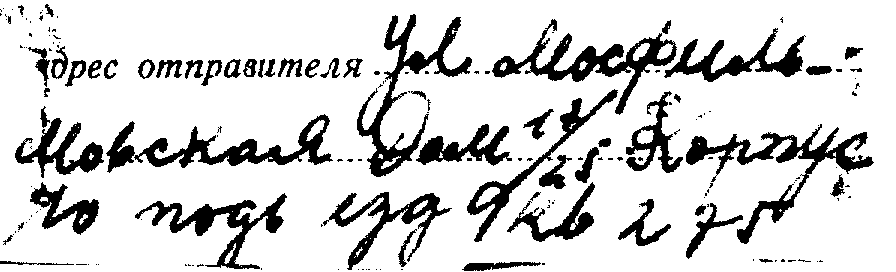 Адрес отправителя Ул Мосфиль-
мовская Дом 17/25 Корпус
10 подъ езд 9 кв 275